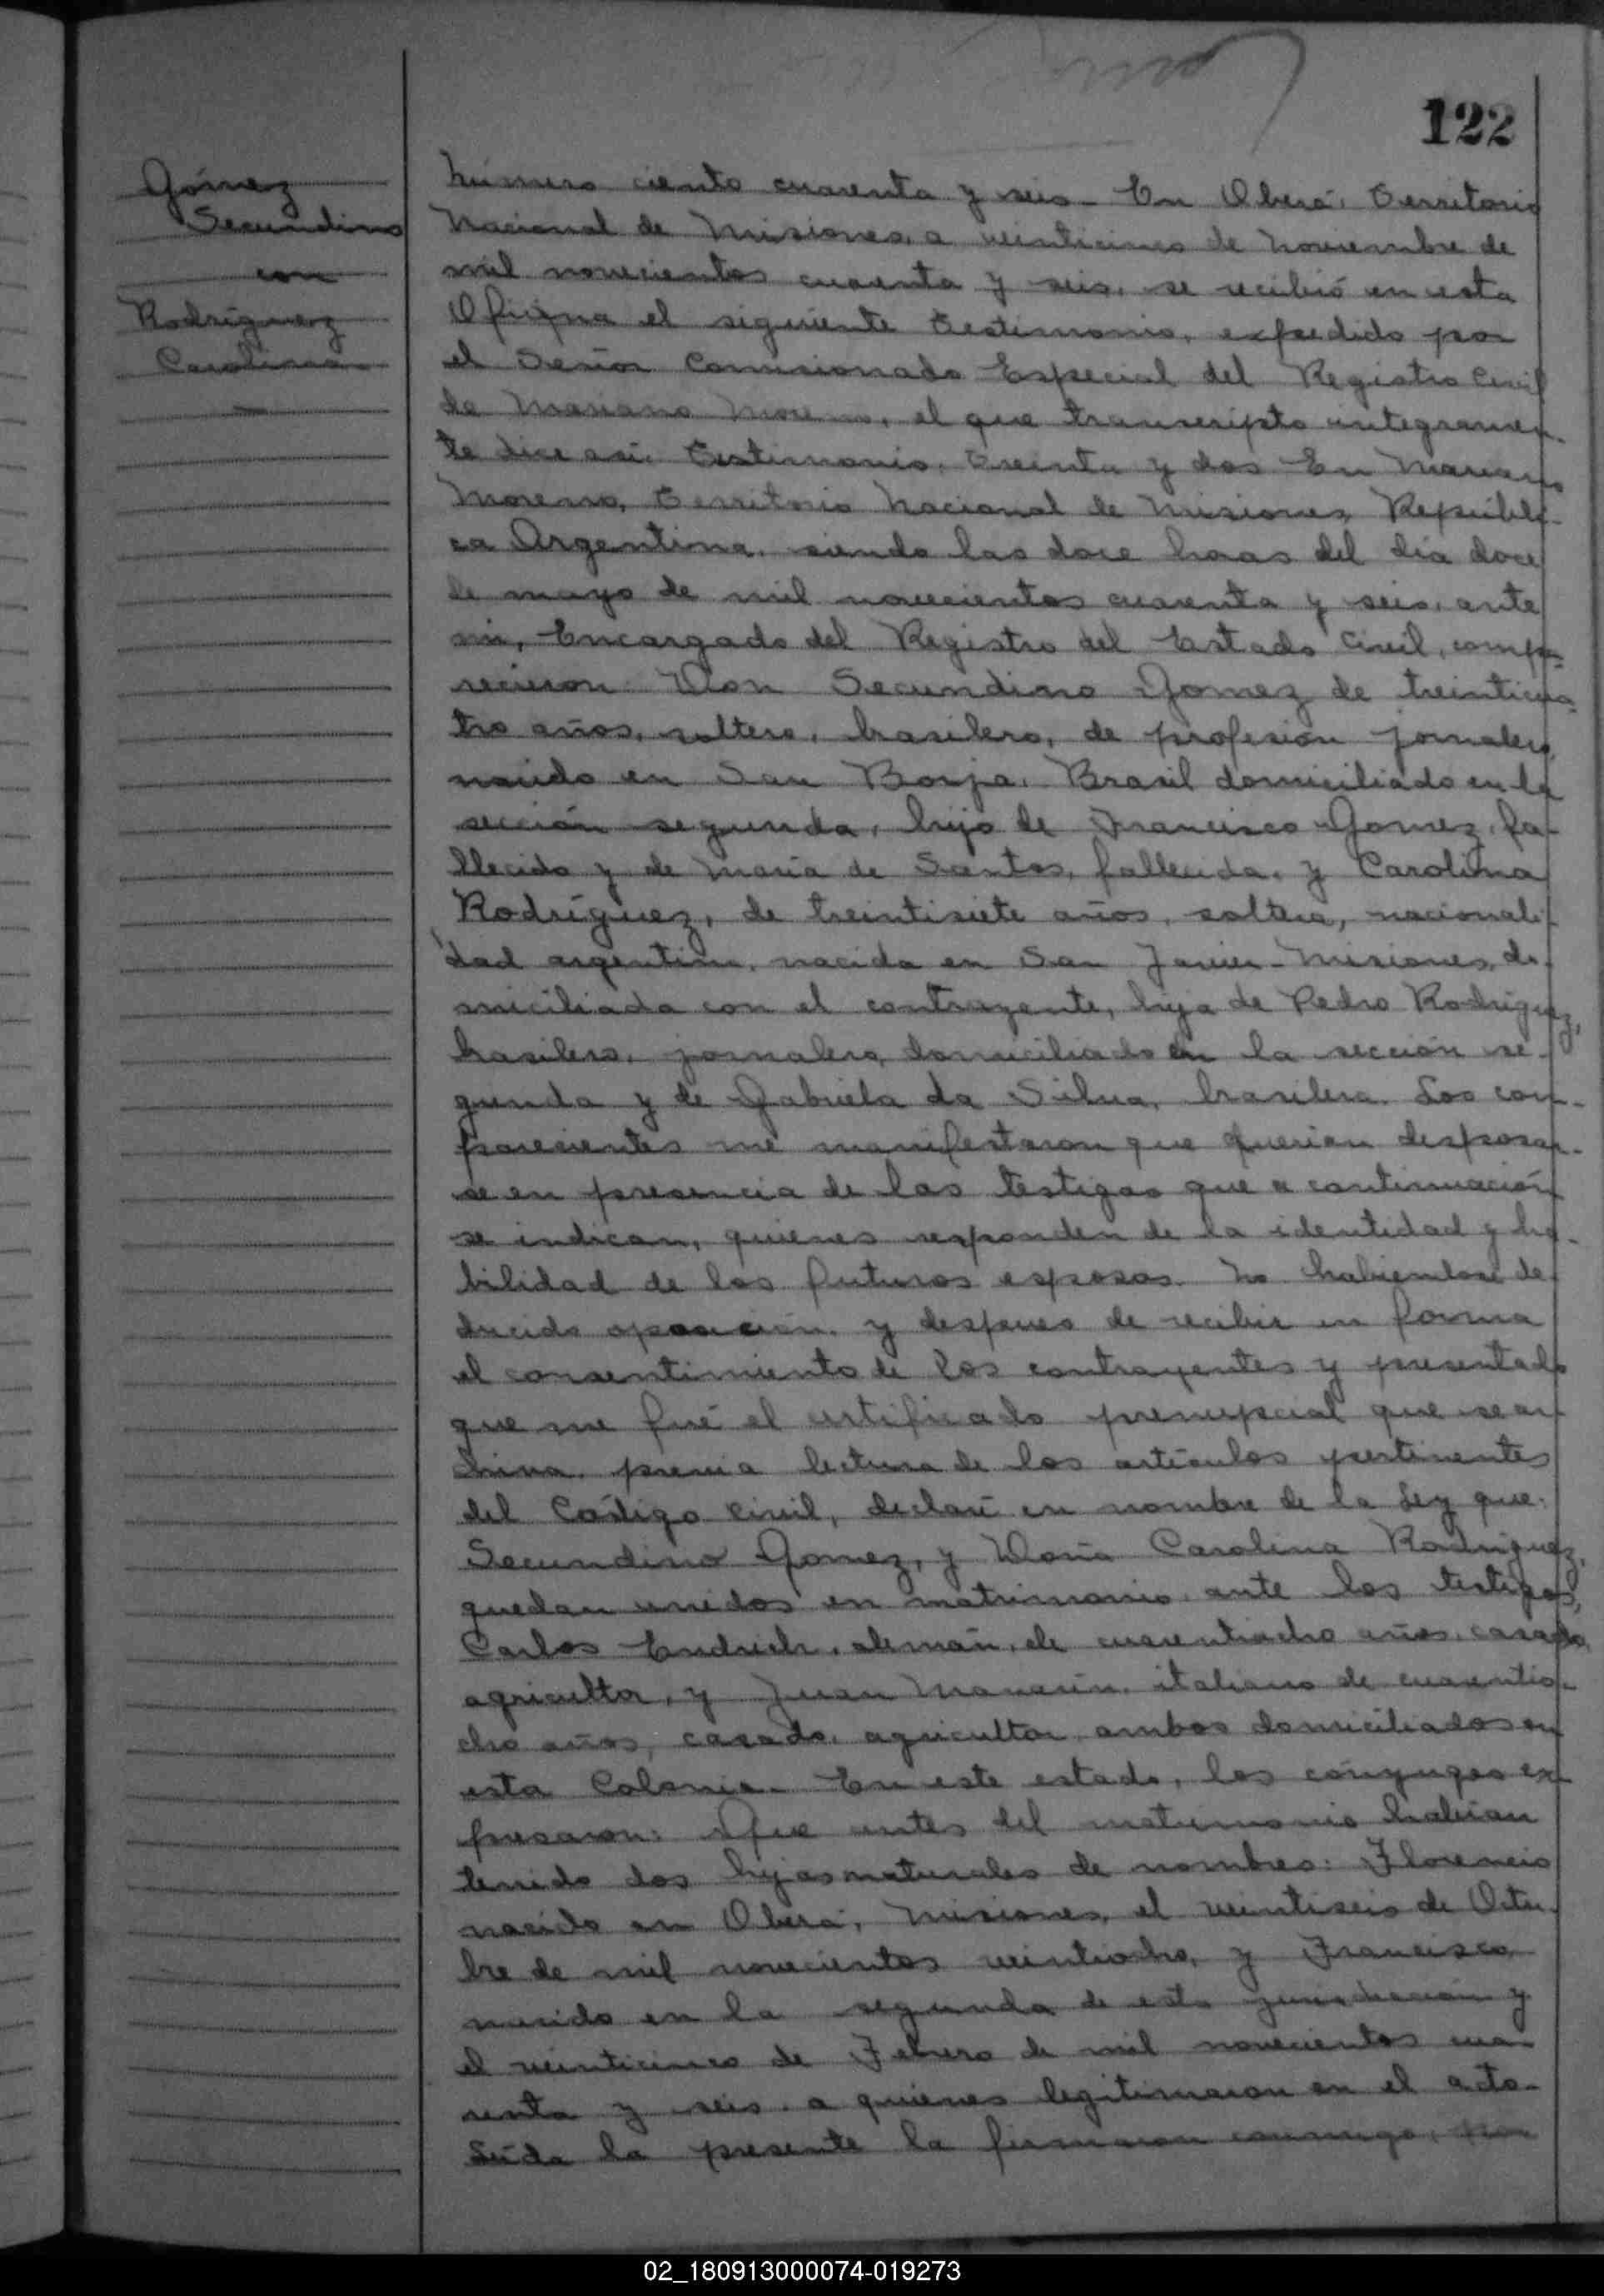 122
Gómez
Secundino
con
Rodríguez
Carolina
Número ciento cuarenta y seis. En Oberá, Territorio
Nacional de Misiones, a veinticinco de Noviembre de
mil novecientos cuarenta y seis, se recibió en esta
Oficina el siguiente Testimonio, expedido por
el Señor Comisionado Especial del Registro Civil
de Mariano Moreno, el que transcripto integramen-
te dice así: Testimonio, Treinta y dos En Mariano
Moreno, Territorio Nacional de Misiones, Repúbli-
ca Argentina, siendo las doce horas del día doce
de mayo de mil novecientos cuarenta y seis, ante
mi, Encargado del Registro del Estado Civil, compa-
recieron: Don Secundino Gomez de treinticua-
tro años, soltero, brasilero, de profesión jornalero,
nacido en San Borja, Brasil domiciliado en la
sección segunda, hijo de Francisco Gomez, fa-
llecido y de María de Santos, fallecida, y Carolina
Rodríguez, de treintisiete años, soltera, nacionali-
dad argentina, nacida en San Javier - Misiones, do-
miciliada con el contrayente, hija de Pedro Rodriguez,
brasilero, jornalero, domiciliado en la sección se-
gunda y de Gabriela da Silva, brasilera. Los com-
parecientes me manifestaron que querian desposar-
se en presencia de los testigos que a continuación
se indican, quienes responden de la identidad y ha-
bilidad de los futuros esposos. No habiendose de-
ducido oposición, y despues de recibir en forma
el consentimiento de los contrayentes y presentado
que me fué el certificado prenupcial que se ar-
chiva, previa lectura de los artículos pertinentes
del Código Civil, declaré en nombre de la Ley que:
Secundino Gomez, y Doña Carolina Rodriguez,
quedan unidos en matrimonio ante los testigos,
Carlos Endrich, alemán, de cuarentiocho años, casado,
agricultor, y Juan italiano de cuarentio-
cho años, casado, agricultor, ambos domiciliados en
esta Colonia. En este estado, los cónyuges ex-
presaron: Que antes del matrimonio habian
tenido dos hijos naturales de nombres: Florencio
nacido en Oberá, Misiones, el veintiseis de Octu-
bre de mil novecientos veintiocho, y Francisco,
nacido en la segunda de esta jurisdicción y
el veinticinco de Febrero de mil novecientos cua-
renta y seis, a quienes legitimaron en el acto.
Leída la presente la firmaron conmigo, por
02_180913000074-019273